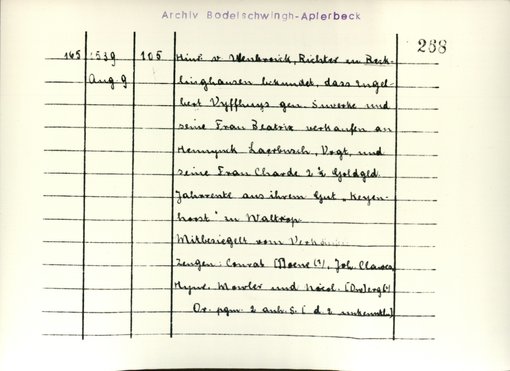 Archiv Bodelschwingh-Aplerbeck
268
165 1539 105 Hinr v. Westerwick, Richter in Reck-
Aug. 9 linghausen bekundet, dass Engel-
bert Vyffhuys gen. Suverke und
seine Frau Beatrix verkaufen an
Hennynck Laerbusch, Vogt, und
seine Frau Charde 2 ½ Goldgld.
Jahrrente aus ihrem Gut "Keyen-
horst" in Waltrop.
Mitbesiegelt vom Verkäufer
Zeugen: Conrat (?), Joh.
und Nicol.
Or. pgm. 2 anh. S. ( d. 2. unkenntl.)